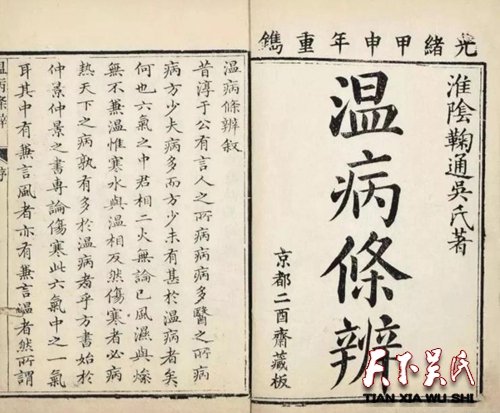 光緒甲申年重鐫
淮陰鞠通吳氏著
温病條辨
京都二酉齋藏板
温病條辨叙
昔淳于公有言人之所病病病多醫之所病
病方少夫病多而方少未有甚於温病者矣
何也六氣之中君相二火無論已風濕與燥
無不兼温惟寒水與温相反然傷寒者必病
熱天下之病孰有多於温病者乎方書始於
仲景仲景之書專論傷寒此六氣中之一氣
耳其中有兼言風者亦有兼言温者然所謂
天下吴氏
TIAN XIA WU SHI